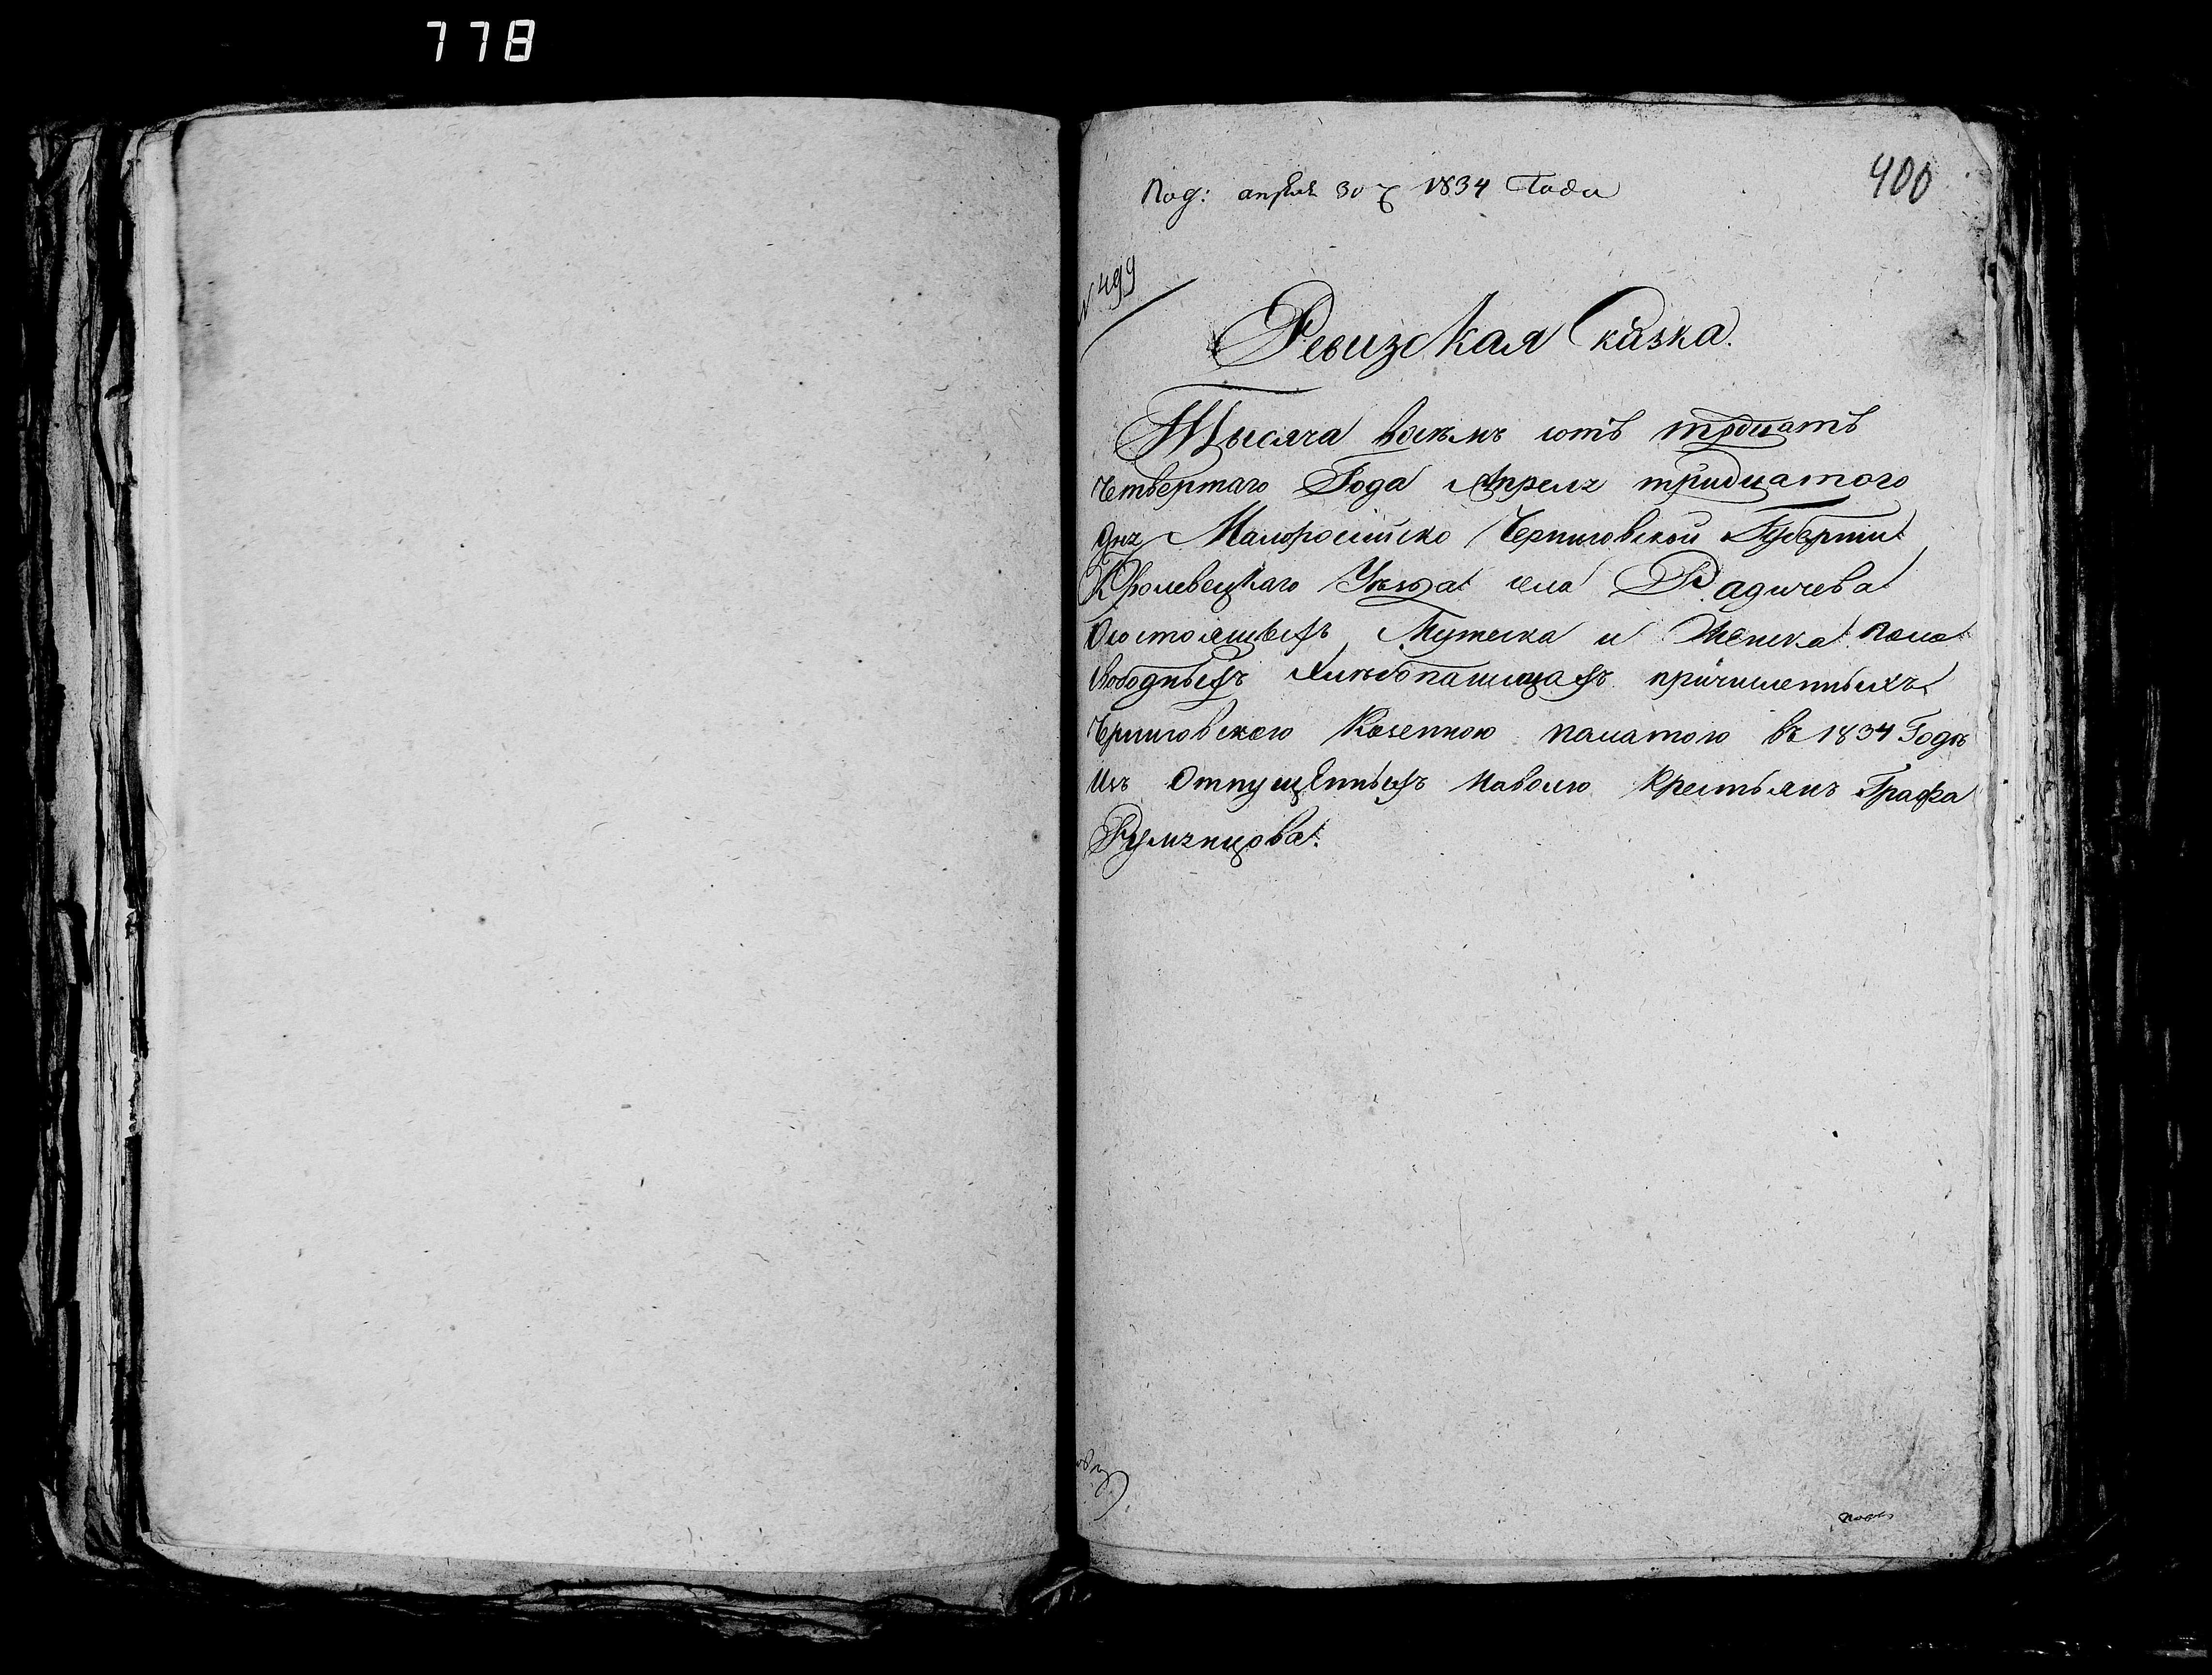 778
400
Под: апреля 30 1834 Года
N 499
Ревизская Сказка.
Тысяча восемъ сотъ тридцать
четвертаго Года Апреля тридцатого
дня Малоросийско Черниговской Губернии
Кролевецкаго Уезда села Радичева
О состоящихъ Мужеска и Женска пола
свободныхъ хлебопашцахъ причисленныхъ
Черниговскою Казенною палатою въ 1834 Годе
Изъ Отпущенныхъ наволю Крестьянъ Графа
Румянцова.